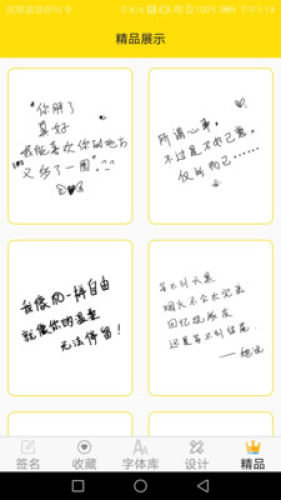 仅紧急呼叫
0 K/s 100% 下午1:14
精品展示
"你胖了
真好
我能喜欢你的地方
又多了一圈"
所谓心事，
不过是不如己意。
仅此而已……
我像风一样自由
就像你的温柔
无法停留！
等不到天黑
烟火不会太完美
回忆烧成灰
还是等不到结尾
签名 收藏 字体库 设计 精品